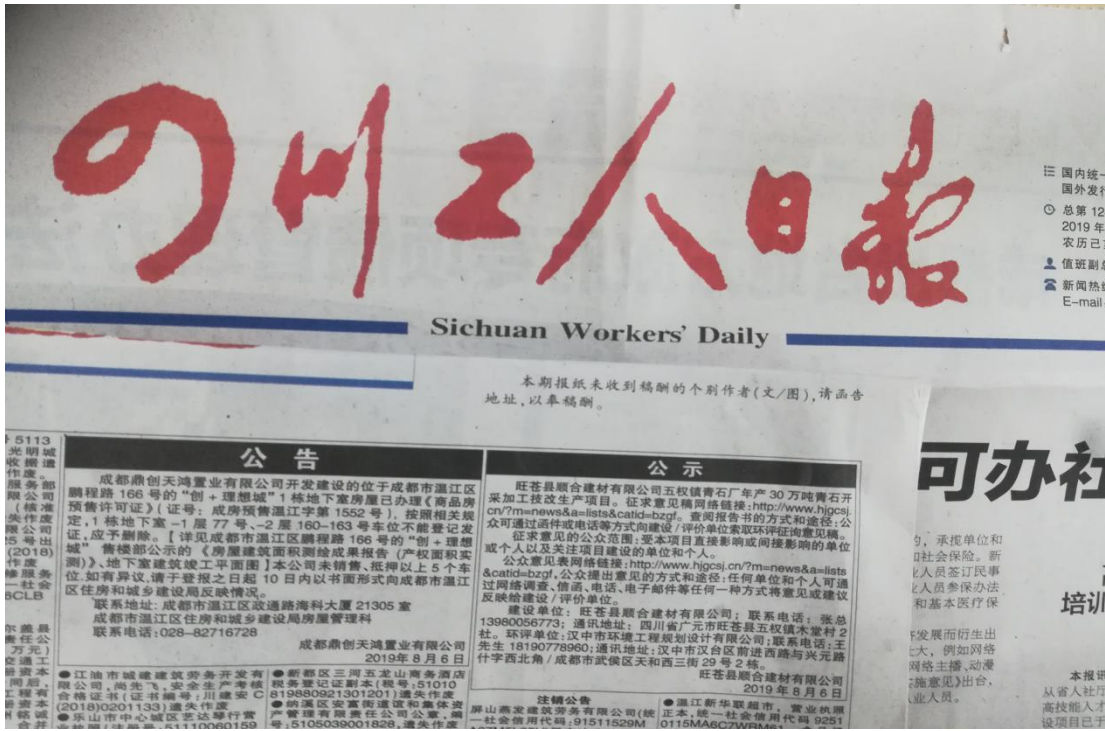 四川工人日报
Sichuan Workers' Daily
国内统一
国外发行
总第 12
2019 年
农历己
值班副总
新闻热线
E-mail
本期报纸未收到稿酬的个别作者(文/图),请函告
地址,以奉稿酬。
5113
光明城
收据遗
作废。
服务部
限公司
(核准
失作废
限公司
5号出
(2018)
作废
修服务
一社会
6CLB
公告
成都鼎创天鸿置业有限公司开发建设的位于成都市温江区
鹏程路 166 号的“创+理想城”1 栋地下室房屋已办理《商品房
预售许可证》(证号:成房预售温江字第 1552 号),按照相关规
定,1 栋地下室 -1 层 77 号、-2 层 160-163 号车位不能登记发
证,应予删除。【详见成都市温江区鹏程路 166 号的“创+理想
城” 售楼部公示的《房屋建筑面积测绘成果报告 (产权面积实
测)》、地下室建筑竣工平面图】本公司未销售、抵押以上 5 个车
位.如有异议,请于登报之日起 10 日内以书面形式向成都市温江
区住房和城乡建设局反映情况。
联系地址: 成都市温江区政通路海科大厦 21305 室
成都市温江区住房和城乡建设局房屋管理科
联系电话:028-82716728
成都鼎创天鸿置业有限公司
2019年 8 月 6 日
公示
旺苍县顺合建材有限公司五权镇青石厂年产 30 万吨青石开
采加工技改生产项目。征求意见稿网络链接:http://www.hjgcsj.
cn/?m=news&a=lists&catid=bzgf。查阅报告书的方式和途径:公
众可通过函件或电话等方式向建设/评价单位索取环评征询意见稿。
征求意见的公众范围:受本项目直接影响或间接影响的单位
或个人以及关注项目建设的单位和个人。
公众意见表网络链接:http://www.hjgcsj.cn/?m=news&a=lists
&catid=bzgf,公众提出意见的方式和途径:任何单位和个人可通
过网络调查、信函、电话、电子邮件等任何一种方式将意见或建议
反映给建设/评价单位。
建设单位:旺苍县顺合建材有限公司;联系电话:张总
13980056773;通讯地址:四川省广元市旺苍县五权镇木堂村 2
社。环评单位:汉中市环境工程规划设计有限公司;联系电话:王
先生 18190778960;通讯地址:汉中市汉台区前进西路与兴元路
什字西北角/成都市武侯区天和西三街 29 号 2 栋。
旺苍县顺合建材有限公司
2019 年 8 月 6 日
可办社
的,承揽单位和
和社会保险。新
业人员签订民事
业人员参保办法
和基本医疗保
济发展而衍生出
大,例如网络
网络主播、动漫
实施意见》出台,
业人员。
培训
本报讯
从省人社厅
高技能人才
设项目已于
尔盖县
责任公
万元)
交通工
册资本
同后,
工程有
册资本
●江油市城建建筑劳务开发有
限公司,尚先飞,安全生产考核
合格证书(证书编号:川建安 C
(2018)0201133)遗失作废
●乐山市中心城区艺达琴行营
业执照(注册号:51110060159
●新都区三河五龙山商务酒店
税务登记证副本(税号:51010
8198809213012​01)遗失作废
●纳溪区安富街道谊和集体资
产管理有限责任公司公章,编
号:5105039001828,遗失作废
注销公告
屏山燕发建筑劳务有限公司(统
一社会信用代码:91511529M
●温江新华联超市,营业执照
正本,统一社会信用代码 9251
0115MA6C7WRM61